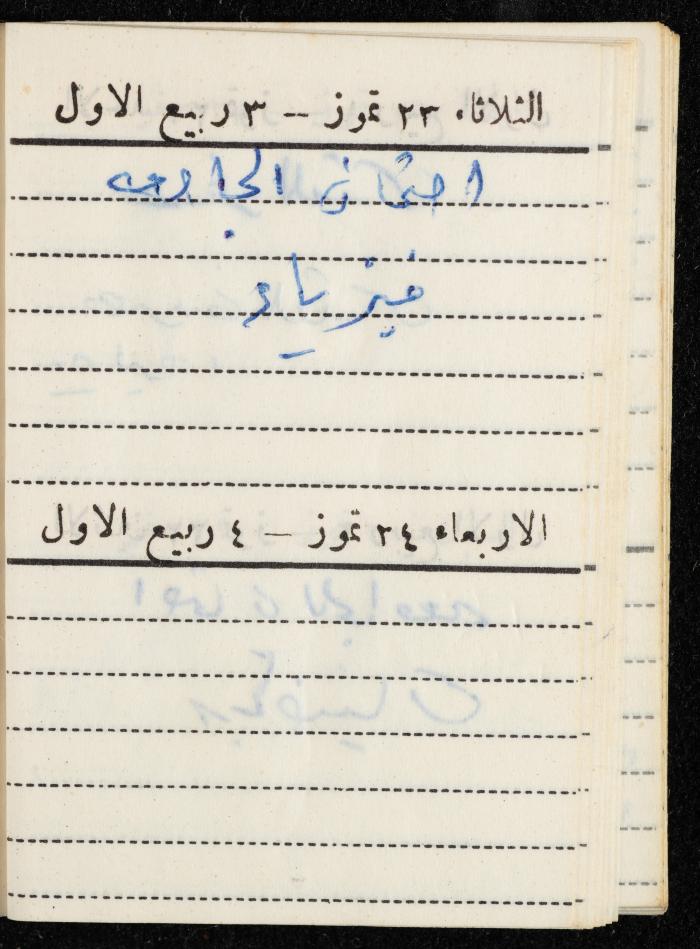 الثلاثاء ٢٣ تموز -- ٣ ربيع الاول
امتحان الجامعه
فيزياء
الاربعاء ٢٤ تموز -- ٤ ربيع الاول